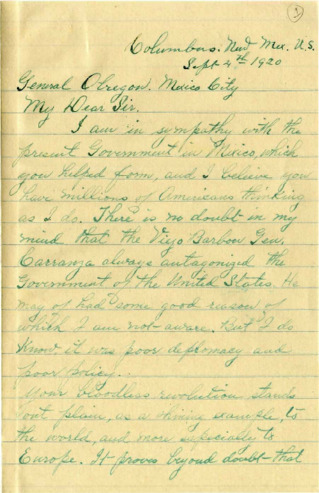 Columbus. New Mex. U.S.
Sept 4th 1920
General Obregon. Mexico City
My Dear Sir.
I am in sympathy with the
present Government in Mexico, which
you helped form, and I believe you
have millions of Americans thinking
as I do. There is no doubt in my
mind that the Viejo Barbon Gen.
Carranza always antagonized the
Government of the United States. He
may of had some good reason of
which I am not aware. But I do
know, it was poor deplomacy and
poor policy.
Your bloodless revolution stands
out plain, as a shining example, to
the world, and more especially to
Europe. It proves beyond doubt that